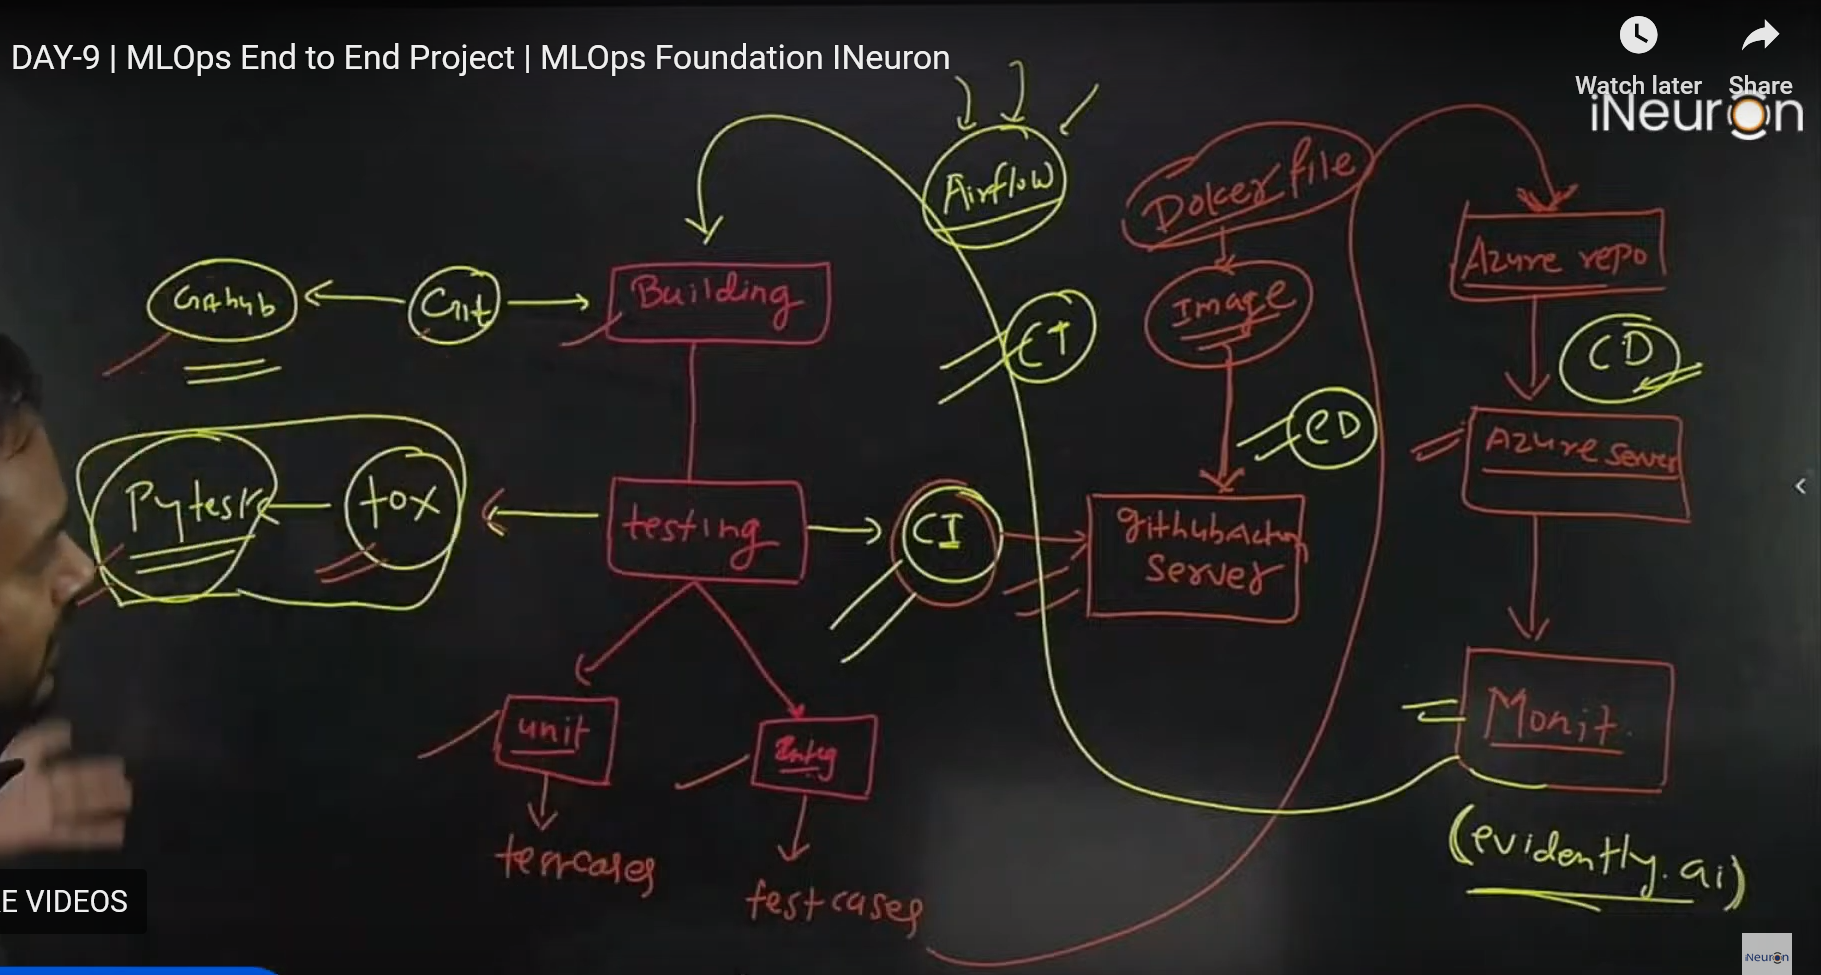 DAY-9 | MLOps End to End Project | MLOps Foundation INeuron
Watch later
Share
iNeuron
Airflow
Doker file
Azure repo
Github
Git
Building
CT
Image
CD
CD
Azure server
Pytest
tox
testing
CI
github Action
Server
unit
Integ
Monit.
testcases
testcases
(evidently.ai)
E VIDEOS
iNeuron